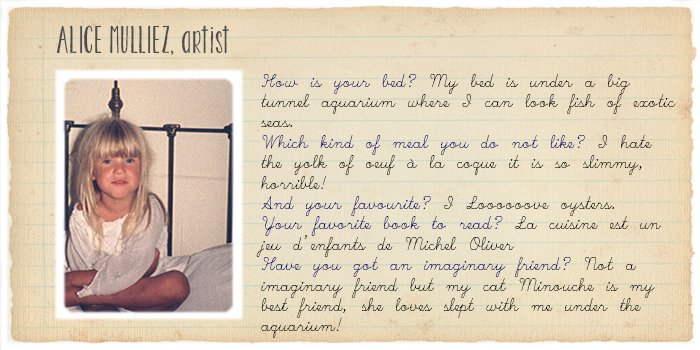 ALICE MULLIEZ, artist
How is your bed? My bed is under a big
tunnel aquarium where I can look fish of exotic
seas.
Which kind of meal you do not like? I hate
the yolk of oeuf à la coque it is so slimmy,
horrible!
And your favourite? I Loooooove oysters.
Your favorite book to read? La cuisine est un
jeu d'enfants de Michel Oliver
Have you got an imaginary friend? Not a
imaginary friend but my cat Minouche is my
best friend, she loves slept with me under the
aquarium!